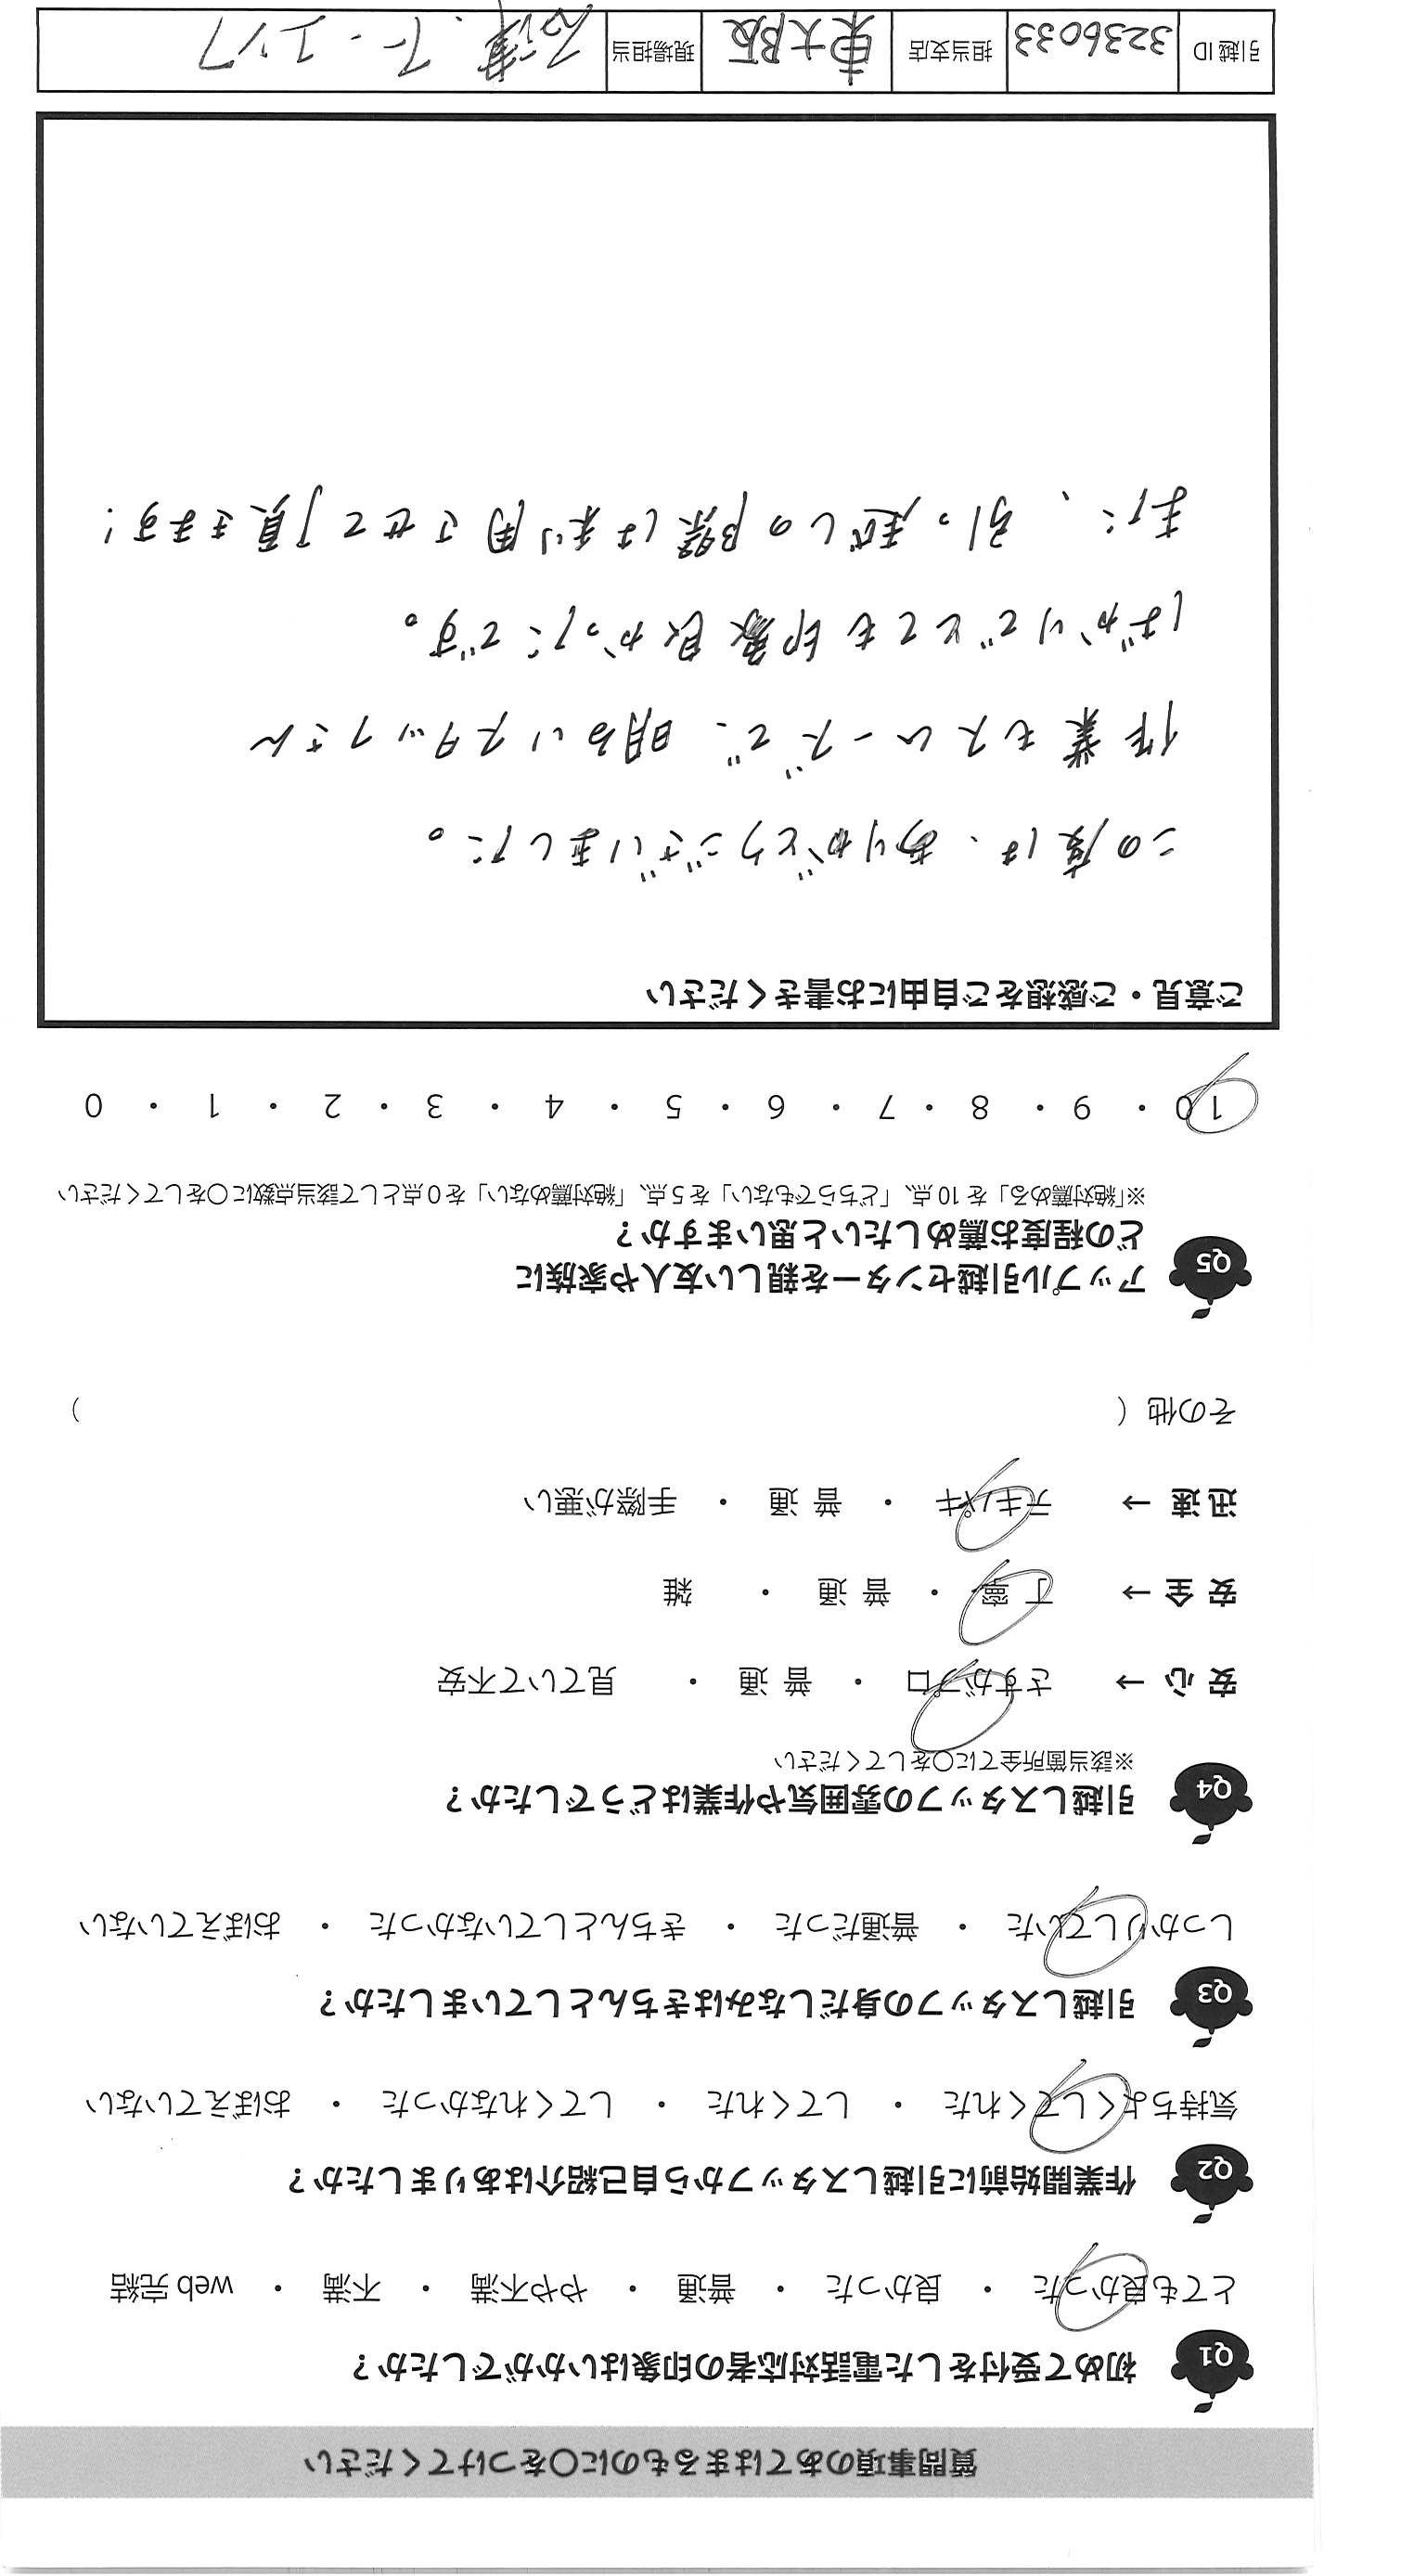 質問事項のあてはまるものに○をつけてください
Q1 初めて受付をした電話対応者の印象はいかがでしたか？
とても良かった ・ 良かった ・ 普通 ・ やや不満 ・ 不満 ・ web完結
Q2 作業開始前に引越しスタッフから自己紹介はありましたか？
気持ちよくしてくれた ・ してくれた ・ してくれなかった ・ おぼえていない
Q3 引越しスタッフの身だしなみはきちんとしていましたか？
しっかりしていた ・ 普通だった ・ きちんとしていなかった ・ おぼえていない
Q4 引越しスタッフの雰囲気や作業はどうでしたか？
※該当箇所全てに○をしてください
安心 → さすがプロ ・ 普通 ・ 見ていて不安
安全 → 丁寧 ・ 普通 ・ 雑
迅速 → テキパキ ・ 普通 ・ 手際が悪い
その他（ ）
Q5 アップル引越センターを親しい友人や家族に
どの程度お薦めしたいと思いますか？
※「絶対薦める」を10点、「どちらでもない」を5点、「絶対薦めない」を0点として該当点数に○をしてください
10 ・ 9 ・ 8 ・ 7 ・ 6 ・ 5 ・ 4 ・ 3 ・ 2 ・ 1 ・ 0
ご意見・ご感想をご自由にお書きください
この度は、ありがとうございました。
作業もスムーズで、明るいスタッフさん
ばかりでとても印象良かったです。
また、引っ越しの際は利用させて頂きます!
引越ID 3236033 担当支店 東大阪 現場担当